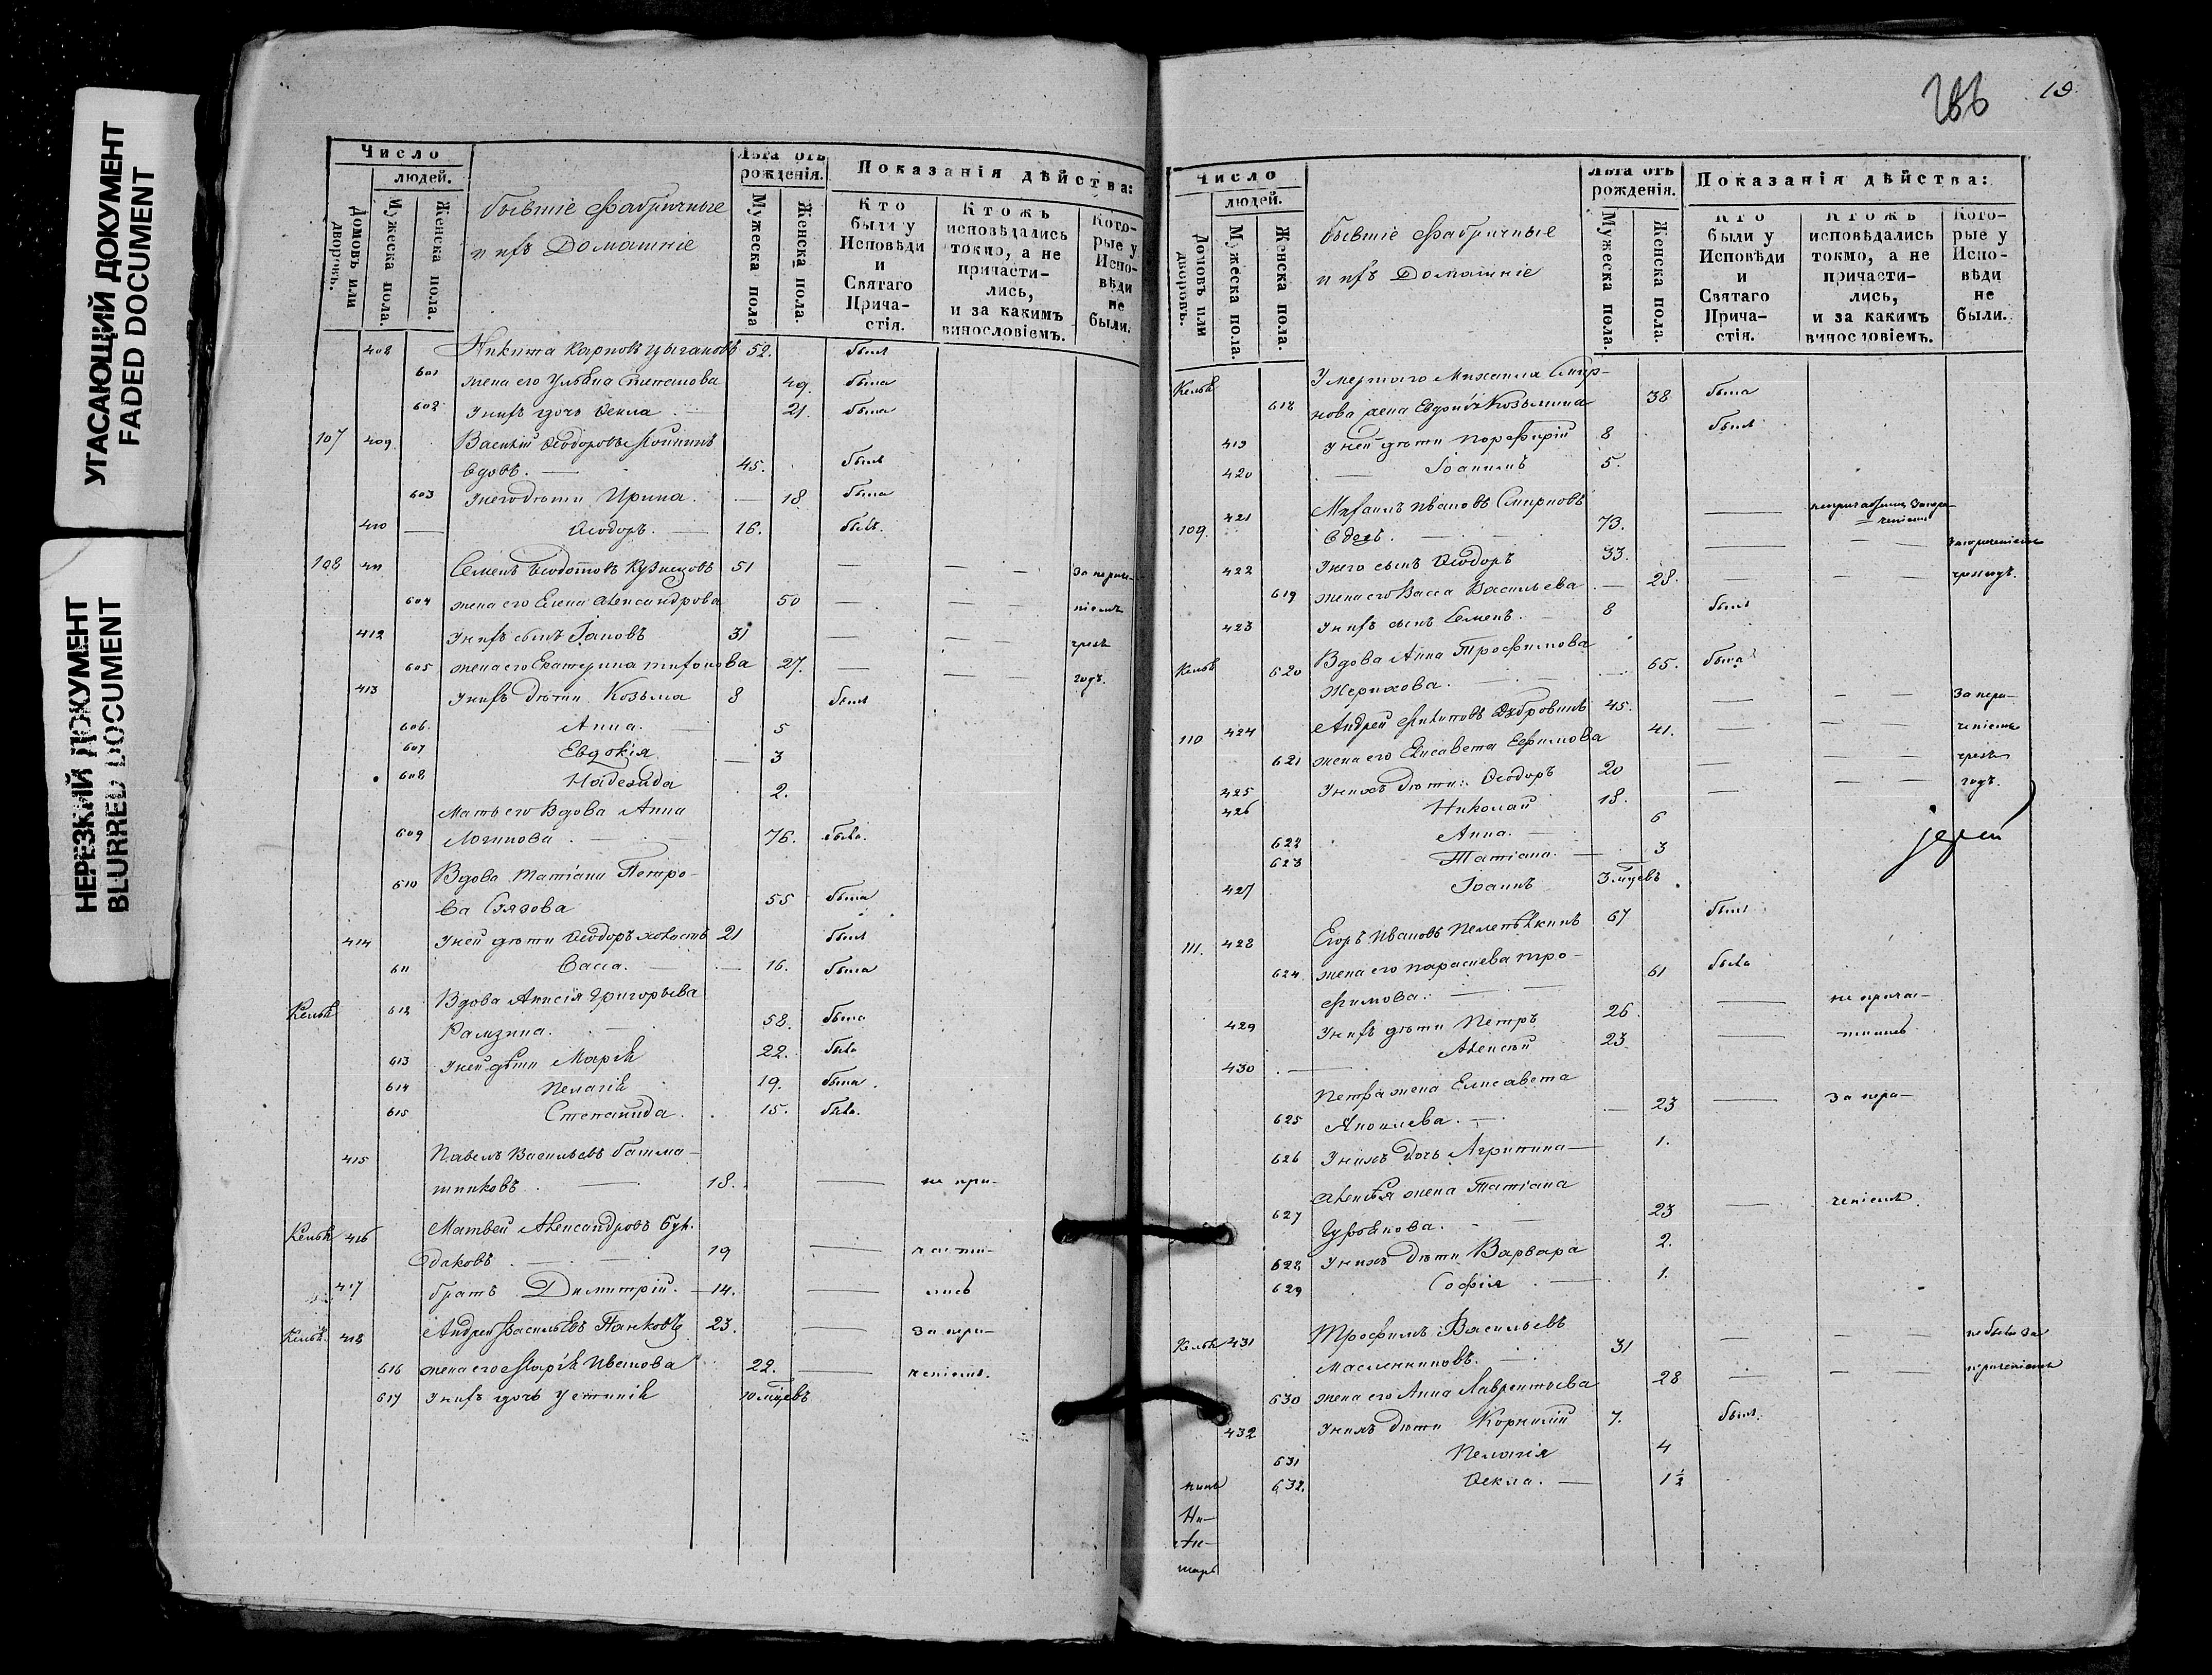 УГАСАЮЩИЙ ДОКУМЕНТ
FADED DOCUMENT
НЕРЕЗКИЙ ДОКУМЕНТ
BLURRED DOCUMENT
Число
людей.
Домовъ или дворовъ.
Мужеска пола.
Женска пола.
бывшіе Фабричные
и ихъ Домашніе
Лѣта отъ рожденія.
Мужеска пола
Женска пола.
Показанія дѣйства:
Кто были у Исповѣди и Святаго Прича-стія.
Ктожъ исповѣдались токмо, а не причасти-лись, и за какимъ винословіемъ.
Кото-рые у Испо-вѣди не были.
408 Никита Карповъ Цыгановъ 52. былъ
601 жена его Ульяна Степанова 49. была
602 У нихъ дочь Ѳекла 21. была
107 409 Василій Ѳеодоровъ
вдовъ. 45. былъ
603 У него дѣти Ирина. 18. была
410 Ѳеодоръ. 16. былъ.
108 411 Семенъ Ѳедотовъ Кузнецовъ 51 — — — за нераче-
604 жена его Елена Александрова 50 — — — ніемъ
412 У нихъ сынъ Іаковъ 31 — — — чрезъ
605 жена его Екатерина Тихонова 27. — — — годъ.
413 У нихъ дѣти Козьма 8 былъ
606. Анна. 5
607 Евдокія 3
608 Надежда 2.
Мать его Вдова Анна
609 Логинова. 76. была.
610 Вдова Татіана Петро-
ва 55 была
414 У ней дѣти Ѳеодоръ холостъ 21 былъ
611 Васса. 16. была
Келья 612 Вдова Анисія Григорьева
Рамзина. 58. была
613 У ней дѣти Марія 22. была
614 Пелагія 19. была.
615 Степанида. 15. была.
415 Павелъ Васильевъ Башма-
шниковъ 18. — не при-
Келья 416 Матвей Александровъ Бур-
даковъ. 19 — части-
417 братъ Димитрій. 14. — лись
Келья. 418 Андрей Васильевъ Панковъ 23. — за нера-
616 жена его Марія Иванова 22. — ченіемъ.
617 У нихъ дочь Устинія 10 мцевъ
266 19.
Число
людей.
Домовъ или дворовъ.
Мужеска пола.
Женска пола.
бывшіе Фабричные
и ихъ Домашніе
Лѣта отъ рожденія.
Мужеска пола.
Женска пола.
Показанія дѣйства:
Кто были у Исповѣди и Святаго Прича-стія.
Ктожъ исповѣдались токмо, а не причасти-лись, и за какимъ винословіемъ.
Кото-рые у Испо-вѣди не были.
Келья Умершаго Михаила Смир-
618 нова жена Евдокія Козьмина 38 была
419 У ней дѣти Порфирій 8 былъ
420 Іоаннъ 5.
421 Михаилъ Ивановъ Смирновъ
109. вдовъ. 73. —
422 У него сынъ Ѳеодоръ 33. — — — за нераченіемъ
619 жена его Васса Васильева 28. — — — чрезъ годъ.
423 У нихъ сынъ Семенъ. 8 былъ
Келья 620 Вдова Анна Трофимова
Жерихова. 65. была
110 424 Андрей Никитовъ Дубровинъ 45. — — — за нера-
621 жена его Елисавета Ефимова 41. — — — ченіемъ
425 У нихъ дѣти: Ѳеодоръ 20 — — — чрезъ
426 Николай 18. — — — годъ.
622 Анна. 6
623 Татіана. 3
427 Іоаннъ 3 мцевъ
іерей
111. 428 Егоръ Ивановъ 67 былъ
624 жена его Параскева Тро-
фимова. 61 была
429 У нихъ дѣти Петръ 26. — не прича-
430 Алексѣй 23. — стились
Петра жена Елисавета
625 23 — за нера-
626 У нихъ дочь Агрипина 1.
Алексѣя жена Татіана
627 23 — ченіемъ.
628 У нихъ дѣти Варвара 2.
629 Софія 1.
Келья 431 Трофимъ Васильевъ
Масленниковъ. 31 — — — не были за
630 жена его Анна Лаврентьева 28 — — — нераченіемъ
432 У нихъ дѣти Корнилій 7. былъ.
631 Пелагія 4
632. Ѳекла. 1½
Ни-